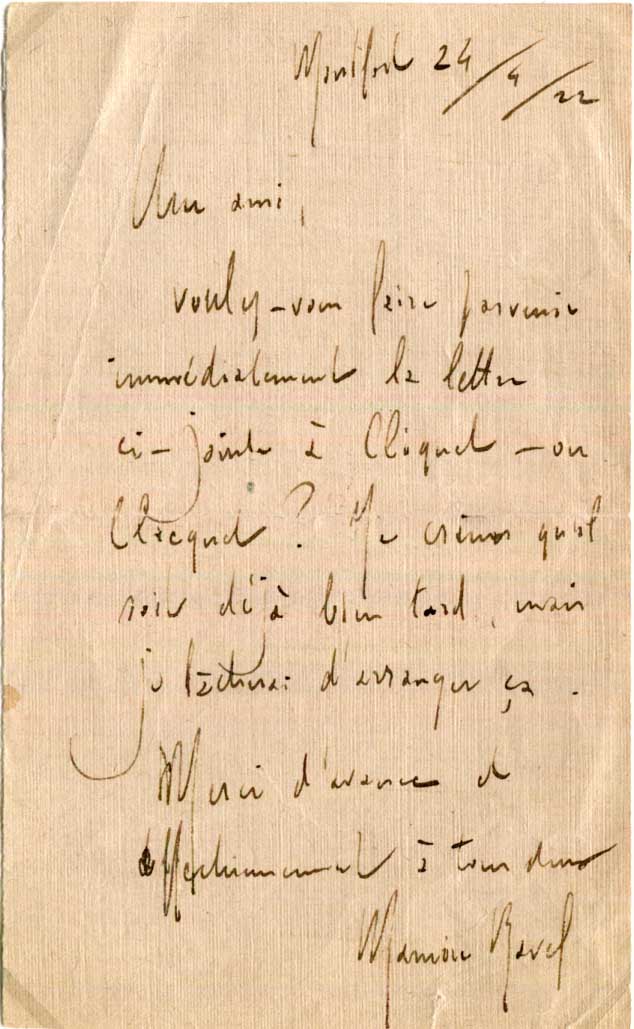 Montfort 24/4/22
Mon ami,
voulez-vous faire parvenir
immédiatement la lettre
ci-jointe à Cliquet - ou
Clecquet ? Je crains qu'il
soit déjà bien tard, mais
je tâcherai d'arranger ça.
Merci d'avance et
affectueusement à tous deux
Maurice Ravel